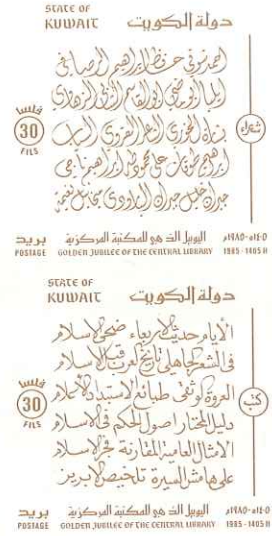 STATE OF
KUWAIT دولة الكويت
احمد شوقي حافظ ابراهيم الرصافي
ايليا ابو ماضي ابو القاسم الشابي الزهاوي
الخوري الشاعر القروي
ابراهيم طوقان علي محمود طه ابراهيم ناجي
جبران خليل جبران البارودي ميخائيل نعيمة
شعراء
فلسا
30
FILS
بريد اليوبيل الذهبي للمكتبة المركزية ١٩٨٥م-١٤٠٥
POSTAGE GOLDEN JUBILEE OF THE CENTRAL LIBRARY 1985 - 1405 H
STATE OF
KUWAIT دولة الكويت
الأيام حديث الاربعاء ضحى الاسلام
في الشعر الجاهلي تاريخ العرب قبل الاسلام
العروة الوثقى طبائع الاستبداد الاعلام
دليل المحتار اصول الحكم في الاسلام
الامثال العامية المقارنة فجر الاسلام
على هامش السيرة تلخيص الابريز
كتب
فلسا
30
FILS
بريد اليوبيل الذهبي للمكتبة المركزية ١٩٨٥م-١٤٠٥
POSTAGE GOLDEN JUBILEE OF THE CENTRAL LIBRARY 1985 - 1405 H